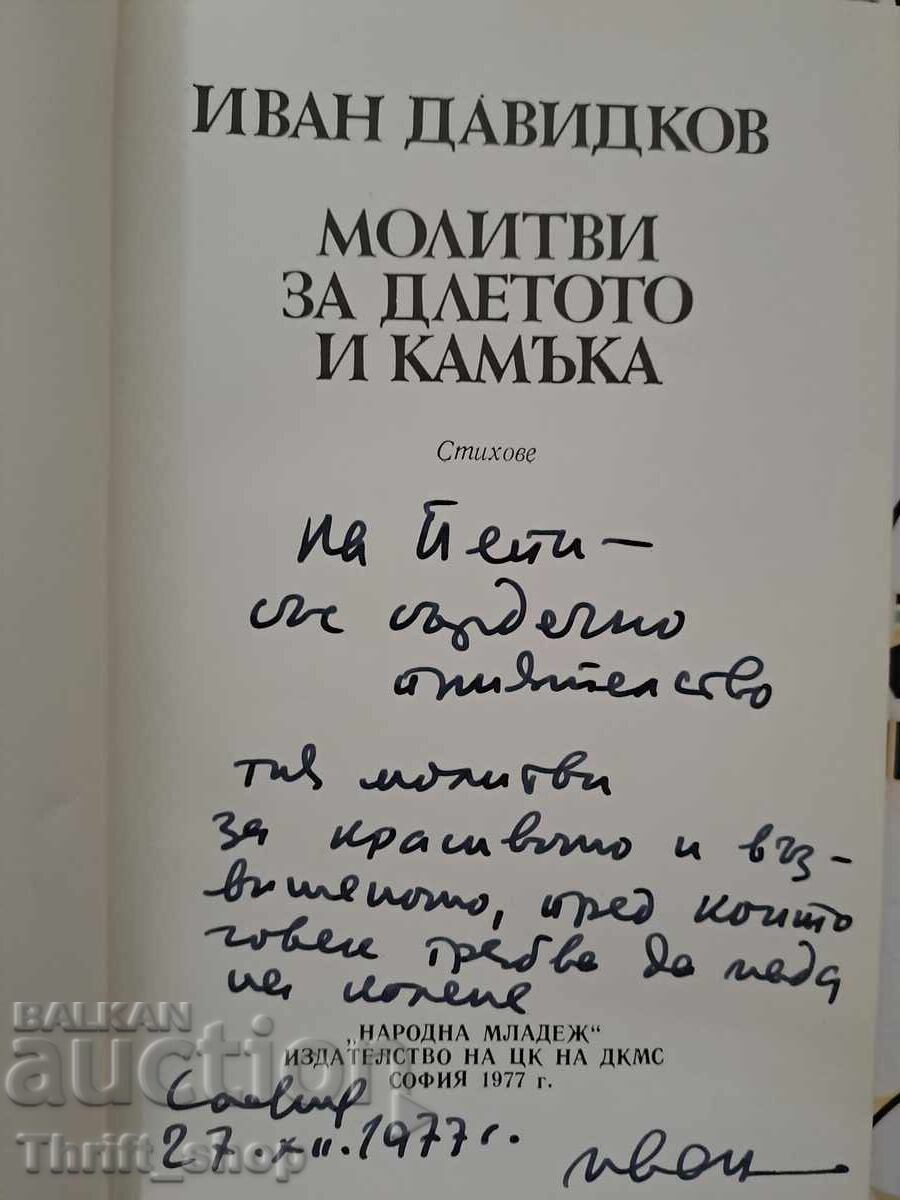 ИВАН ДАВИДКОВ
МОЛИТВИ
ЗА ДЛЕТОТО
И КАМЪКА
Стихове
на Пепи —
със сърдечно
приятелство
тия молитви
за красивото и въз-
вишеното, пред които
човек трябва да пада
на колене
„НАРОДНА МЛАДЕЖ“
ИЗДАТЕЛСТВО НА ЦК НА ДКМС
СОФИЯ 1977 г.
София
27.XII.1977 г.
Иван
BALKAN
auction
Thrift_shop